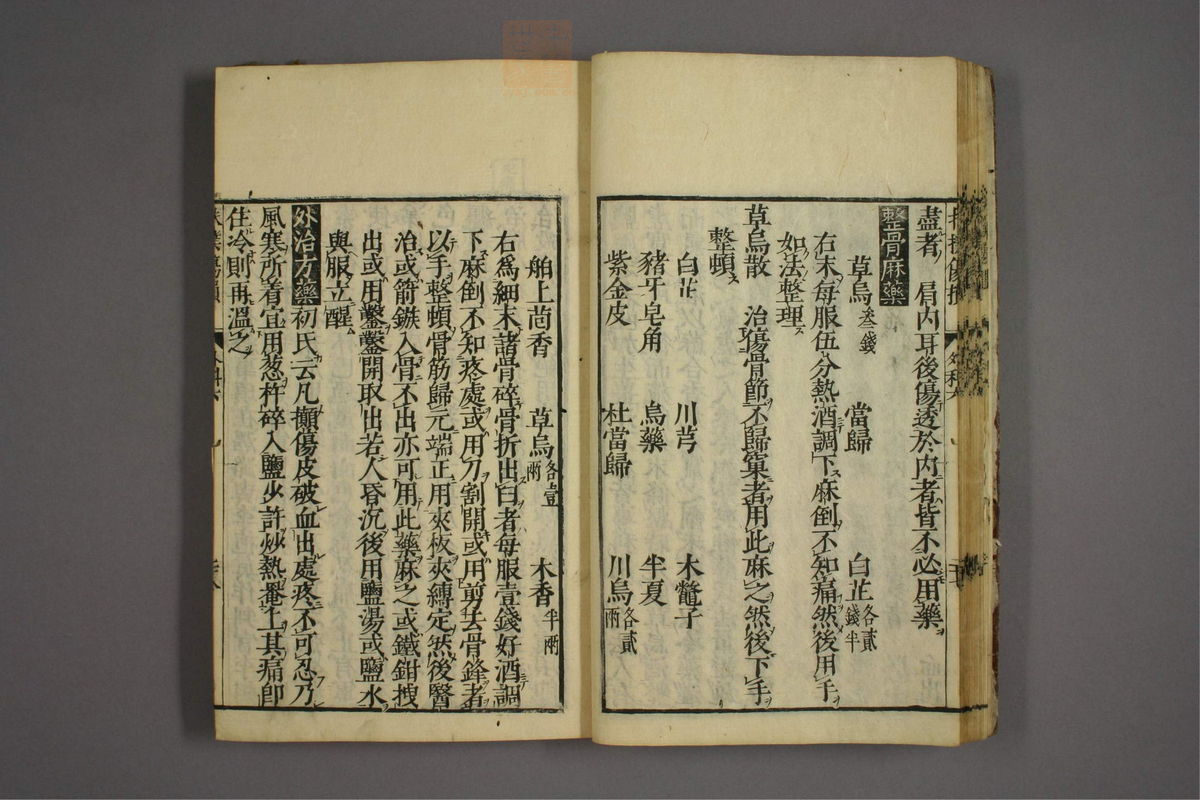 盡者 肩内耳後傷透於内者皆不必用藥
整骨麻藥
草烏叁錢 當歸 白芷各貳錢半
右末每服伍分熱酒調下麻倒不知痛然後用手
如法整理
草烏散 治傷骨節不歸窠者用此麻之然後下手
整頓
白芷 川芎 木鼈子
豬牙皂角 烏藥 半夏
紫金皮 杜當歸 川烏各貳兩
舶上茴香 草烏各壹兩 木香半兩
右爲細末諸骨碎骨折出臼者每服壹錢好酒調
下麻倒不知疼處或用刀割開或用剪去骨鋒者
以手整頓骨筋歸元端正用夾板夾縛定然後醫
治或箭鏃入骨不出亦可用此藥麻之或鐵鉗拽
出或用鑿鑿開取出若人昏沉後用鹽湯或鹽水
與服立醒
外治方藥 初氏云凡攧傷皮破血出處疼不可忍乃
風寒所着宜用葱杵碎入鹽少許炒熱罨上其痛即
住冷則再溫之